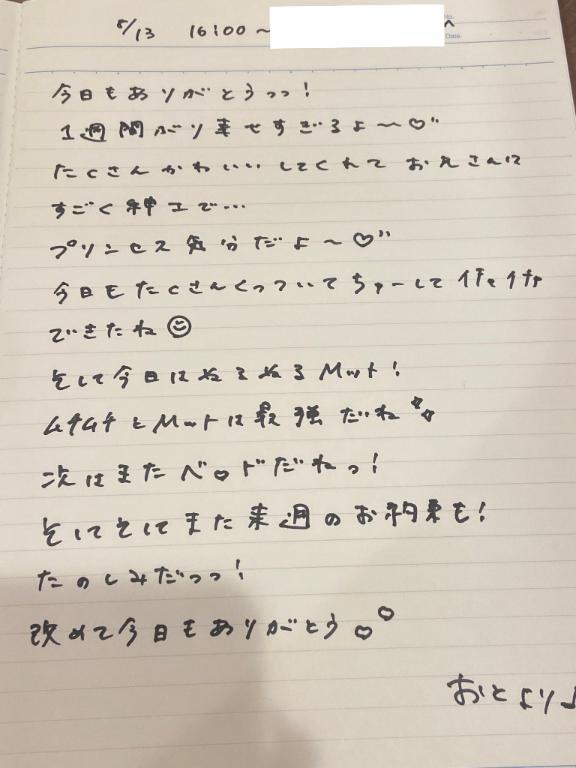 5/13 16:00〜 へ
No.
Date
今日もありがとうっっ!
1週間がり幸せすぎるよ〜♡"
たくさんかわいいしてくれて お兄さんは
すごく紳士で…
プリンセス気分だよ〜♡"
今日もたくさんくっついてちゅーして イチャイチャ
できたね☺
そして今日はぬるぬるMット!
ムチムチとMットは最強だね✨
次はまたベ♡ドだねっ!
そしてそしてまた来週のお約束も!
たのしみだっっ!
改めて今日もありがとう♡♡
おとより♪